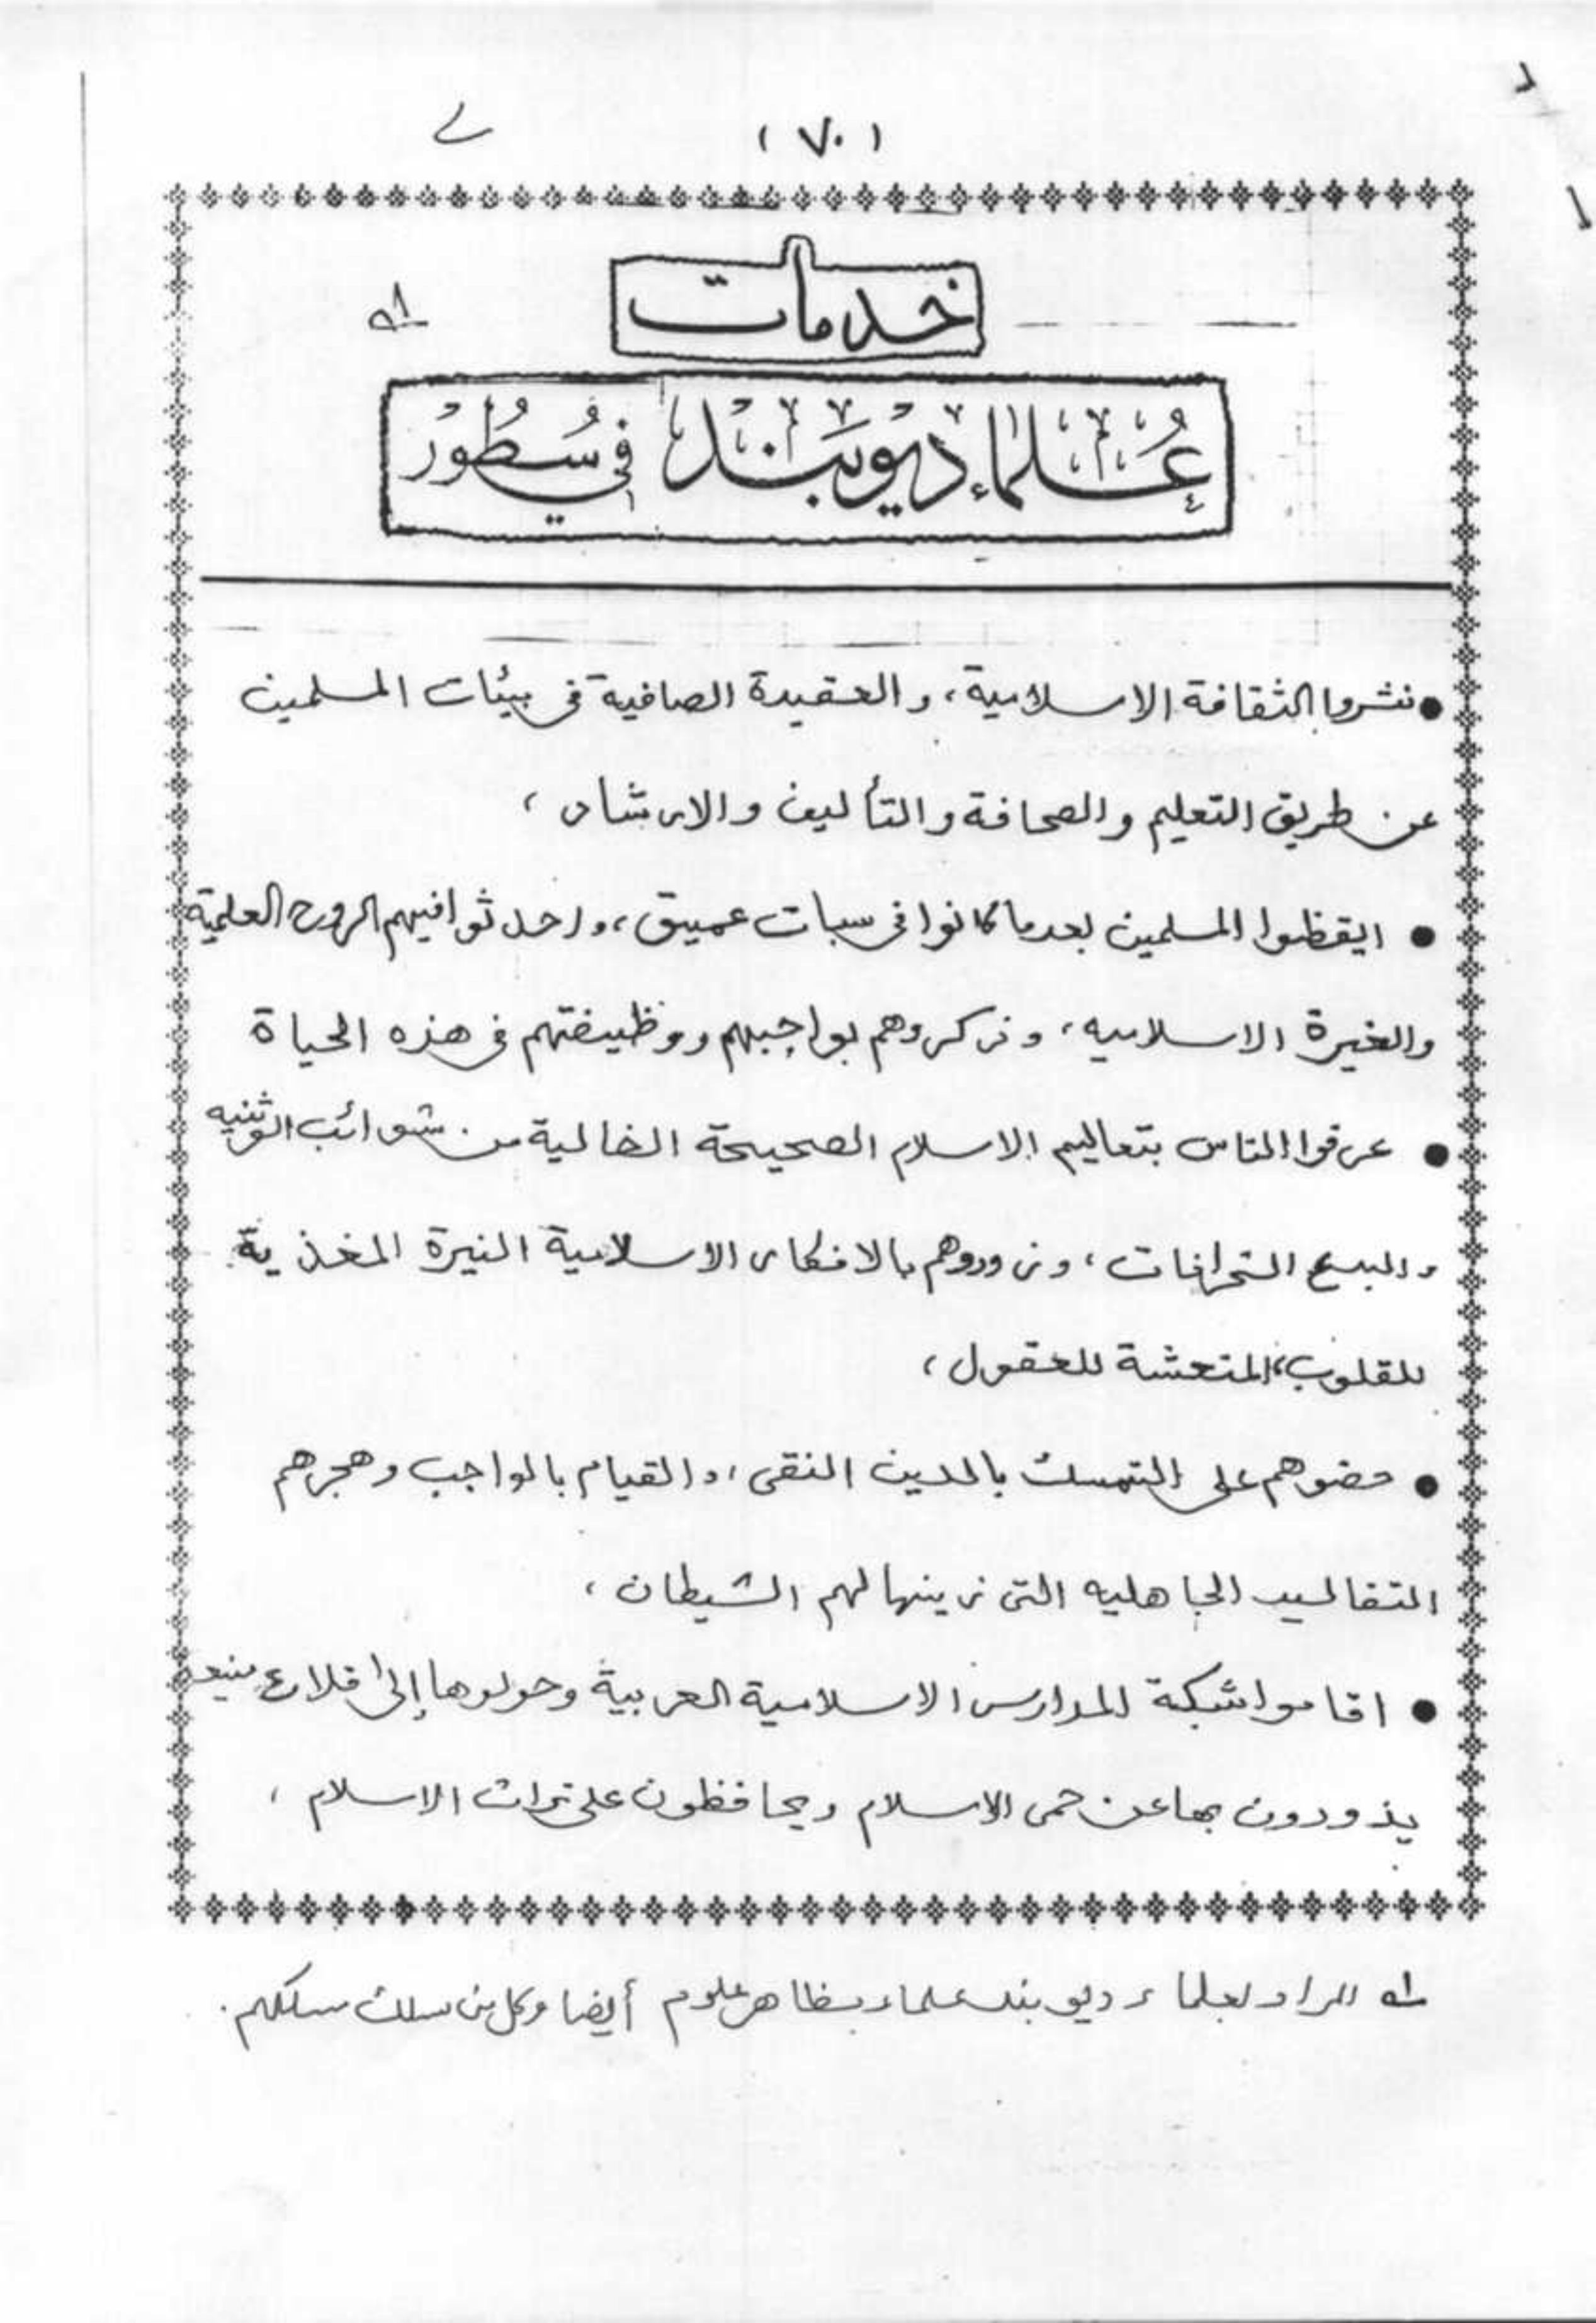 (٧٠)
خدمات
عُلماءِ ديوبند في سُطُور
● نشروا الثقافة الاسلامية، والعقيدة الصافية فى بيئات المسلمين
عن طريق التعليم والصحافة والتأليف والارشاد،
● ايقظوا المسلمين بعدما كانوا فى سبات عميق، واحدثوا فيهم الروح العلمية
والغيرة الاسلاميه، وذكروهم بواجبهم ووظيفتهم فى هذه الحياة
● عرفوا الناس بتعاليم الاسلام الصحيحة الخالية من شوائب الوثنيه
والبدع الخرافات، وزودوهم بالافكار الاسلامية النيرة المغذية
للقلوب، المنعشة للعقول،
● حضوهم على التمسك بالدين النقى، والقيام بالواجب وهجرهم
التقاليد الجاهليه التى زينها لهم الشيطان،
● اقاموا شبكة المدارس الاسلامية العربية وحولوها إلى قلاع منيعه
يذودون بها عن حمى الاسلام ويحافظون على تراث الاسلام،
له المراد بعلماء ديوبند علماء مظاهر علوم أيضا وكل من سلك مسلكهم.